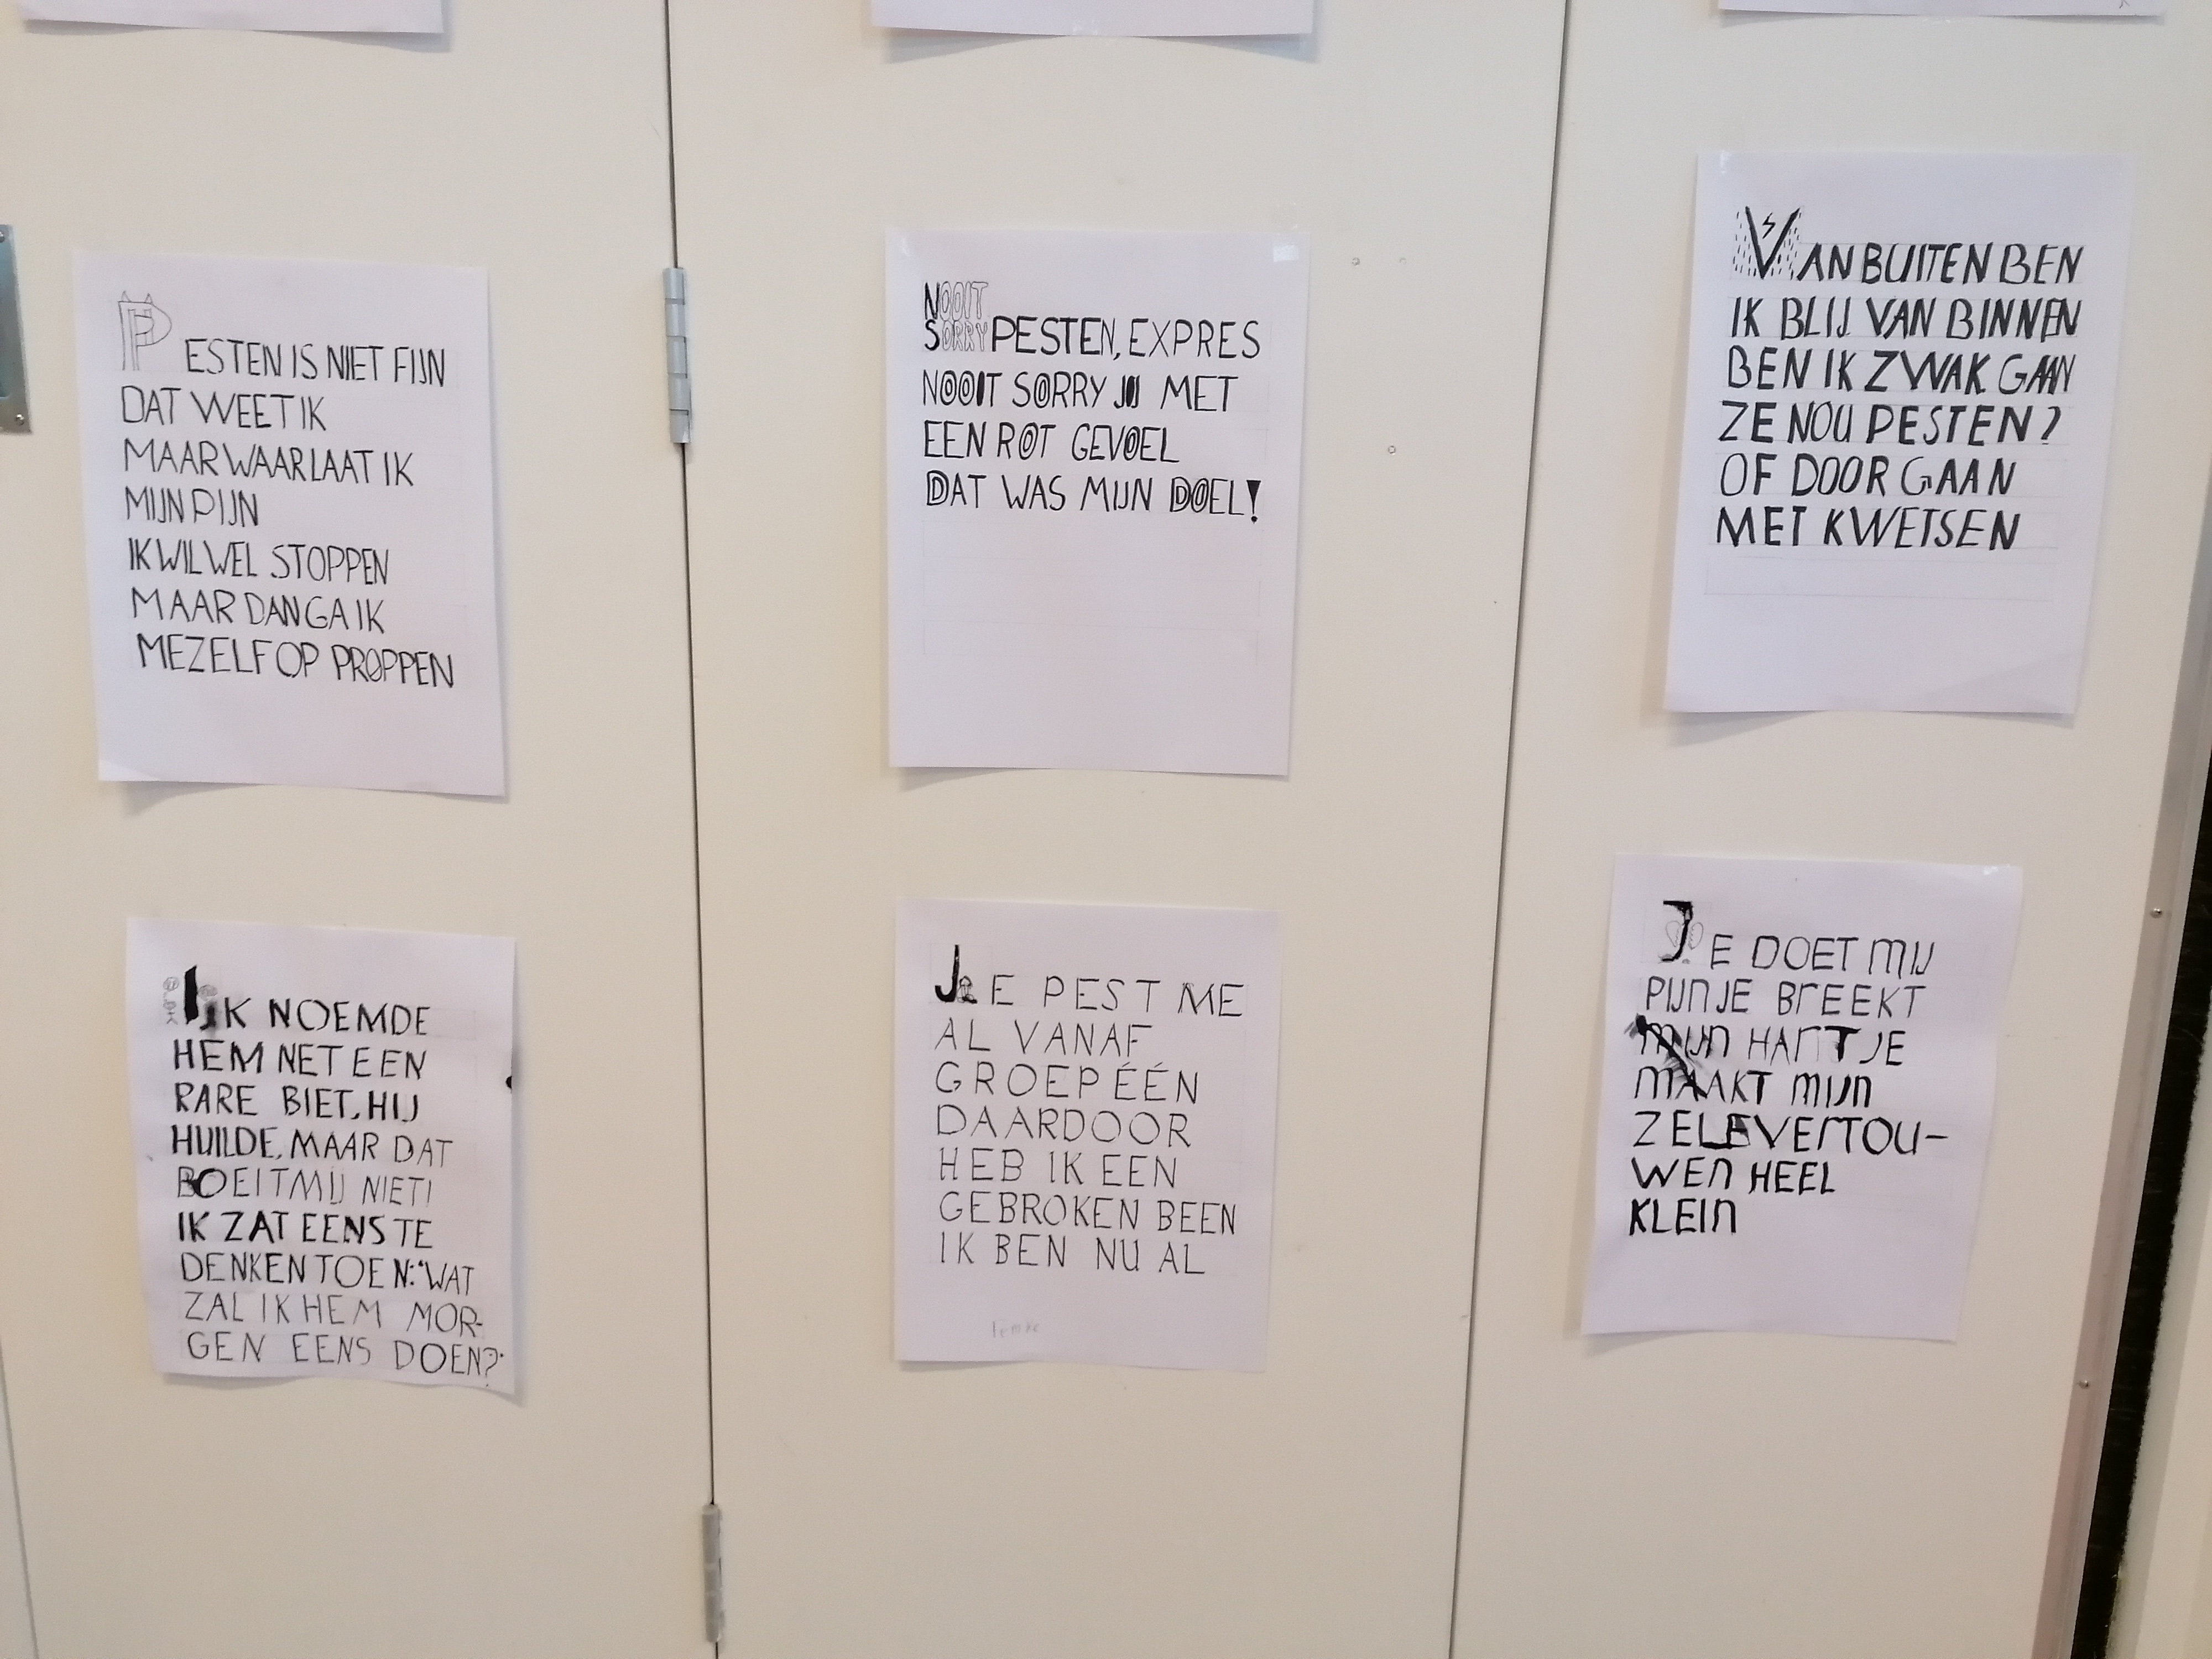 PESTEN IS NIET FIJN
DAT WEET IK
MAAR WAAR LAAT IK
MIJN PIJN
IK WIL WEL STOPPEN
MAAR DAN GA IK
MEZELF OP PROPPEN
NOOIT
SORRY PESTEN, EXPRES
NOOIT SORRY JIJ MET
EEN ROT GEVOEL
DAT WAS MIJN DOEL!
VAN BUITEN BEN
IK BLIJ VAN BINNEN
BEN IK ZWAK GAAN
ZE NOU PESTEN?
OF DOOR GAAN
MET KWETSEN
IK NOEMDE
HEM NET EEN
RARE BIET, HIJ
HUILDE, MAAR DAT
BOEIT MIJ NIET!
IK ZAT EENS TE
DENKEN TOEN: "WAT
ZAL IK HEM MOR-
GEN EENS DOEN?"
JE PEST ME
AL VANAF
GROEP ÉÉN
DAARDOOR
HEB IK EEN
GEBROKEN BEEN
IK BEN NU AL
JE DOET MIJ
PIJN JE BREEKT
MIJN HARTJE
MAAKT MIJN
ZELFVERTOU-
WEN HEEL
KLEIN